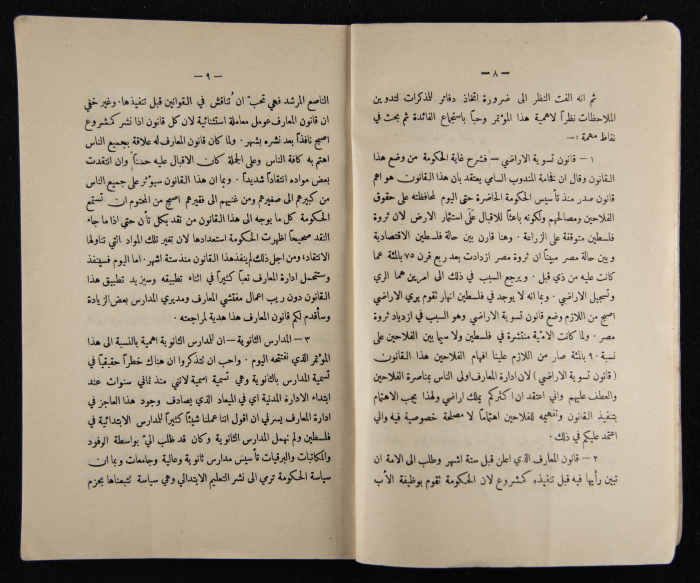 — ٨ —
ثم انه الفت النظر الى ضرورة اتخاذ دفاتر للمذكرات لتدوين
الملاحظات نظراً لاهمية هذا المؤتمر وحباً باستجماع الفائدة ثم بحث في
نقاط مهمة :—
١ — قانون تسوية الاراضي — فشرح غاية الحكومة من وضع هذا
القانون وقال ان فخامة المندوب السامي يعتقد بان هذا القانون هو اهم
قانون صدر منذ تأسيس الحكومة الحاضرة حتى اليوم لمحافظته على حقوق
الفلاحين ومصالحهم ولكونه باعثاً للاقبال على استثمار الارض لان ثروة
فلسطين متوقفة على الزراعة . وهنا قارن بين حالة فلسطين الاقتصادية
وبين حالة مصر مبيناً ان ثروة مصر ازدادت بعد ربع قرن ٧٥ بالمئة عما
كانت عليه من ذي قبل . ويرجع السبب في ذلك الى امرين هما الري
وتسجيل الاراضي . وبما انه لا يوجد في فلسطين انهار تقوم بري الاراضي
اصبح من اللازم وضع قانون تسوية الاراضي وهو السبب في ازدياد ثروة
مصر . ولما كانت الامية منتشرة في فلسطين ولا سيما بين الفلاحين على
نسبة ٩٠ بالمئة صار من اللازم علينا افهام الفلاحين هذا القانون
( قانون تسوية الاراضي ) لان ادارة المعارف اولى الناس بمناصرة الفلاحين
والعطف عليهم واني اعتقد ان اكثركم يملك اراضي ولهذا يجب الاهتمام
بتنفيذ القانون وتفهيمه للفلاحين اهتماماً لا مصلحة خصوصية فيه واني
اعتمد عليكم في ذلك .
٢ — قانون المعارف الذي اعلن قبل ستة اشهر وطلب الى الامة ان
تبين رأيها فيه قبل تنفيذه كمشروع لان الحكومة تقوم بوظيفة الأب
— ٩ —
الناصع المرشد فهي تحبّ ان تُناقش في القوانين قبل تنفيذها . وغير خفي
ان قانون المعارف عومل معاملة استثنائية لان كل قانون اذا نشر كمشروع
اصبح نافذاً بعد نشره بشهر . ولما كان قانون المعارف له علاقة بجميع الناس
اهتم به كافة الناس وعلى الجملة كان الاقبال عليه حسناً وان انتقدت
بعض مواده انتقاداً شديداً . وبما ان هذا القانون سيؤثر على جميع الناس
من كبيرهم الى صغيرهم ومن غنيهم الى فقيرهم اصبح من المحتوم ان تستمع
الحكومة كل ما يوجه الى هذا القانون من نقد بكل تأن حتى اذا ما جاء
النقد صحيحاً اظهرت الحكومة استعدادها لان تغير تلك المواد التي تناولها
الانتقاد، ومن اجل ذلك لم ينفذ هذا القانون منذ ستة اشهر . اما اليوم فسينفذ
وستتحمل ادارة المعارف تعباً كثيراً في اثناء تطبيقه وسيزيد تطبيق هذا
القانون دون ريب اعمال مفتشي المعارف ومديري المدارس بعض الزيادة
وسأقدم لكم قانون المعارف هذا هدية لمراجعته .
٣ — المدارس الثانوية — ان للمدارس الثانوية اهمية بالنسبة الى هذا
المؤتمر الذي نفتتحه اليوم . واحب ان تتذكروا ان هناك خطراً حقيقياً في
تسمية المدارس بالثانوية وهي تسمية اسمية لانني منذ ثماني سنوات عند
ابتداء الادارة المدنية اي في الميعاد الذي يصادف وجود هذا العاجز في
ادارة المعارف يسرني ان اقول اننا عملنا شيئاً كثيراً للمدارس الابتدائية في
فلسطين ولم نهمل المدارس الثانوية وكان قد طلب اليّ بواسطة الوفود
والمكاتبات والبرقيات تأسيس مدارس ثانوية وعالية وجامعات وبما ان
سياسة الحكومة ترمي الى نشر التعليم الابتدائي وهي سياسة تتبعناها بحزم